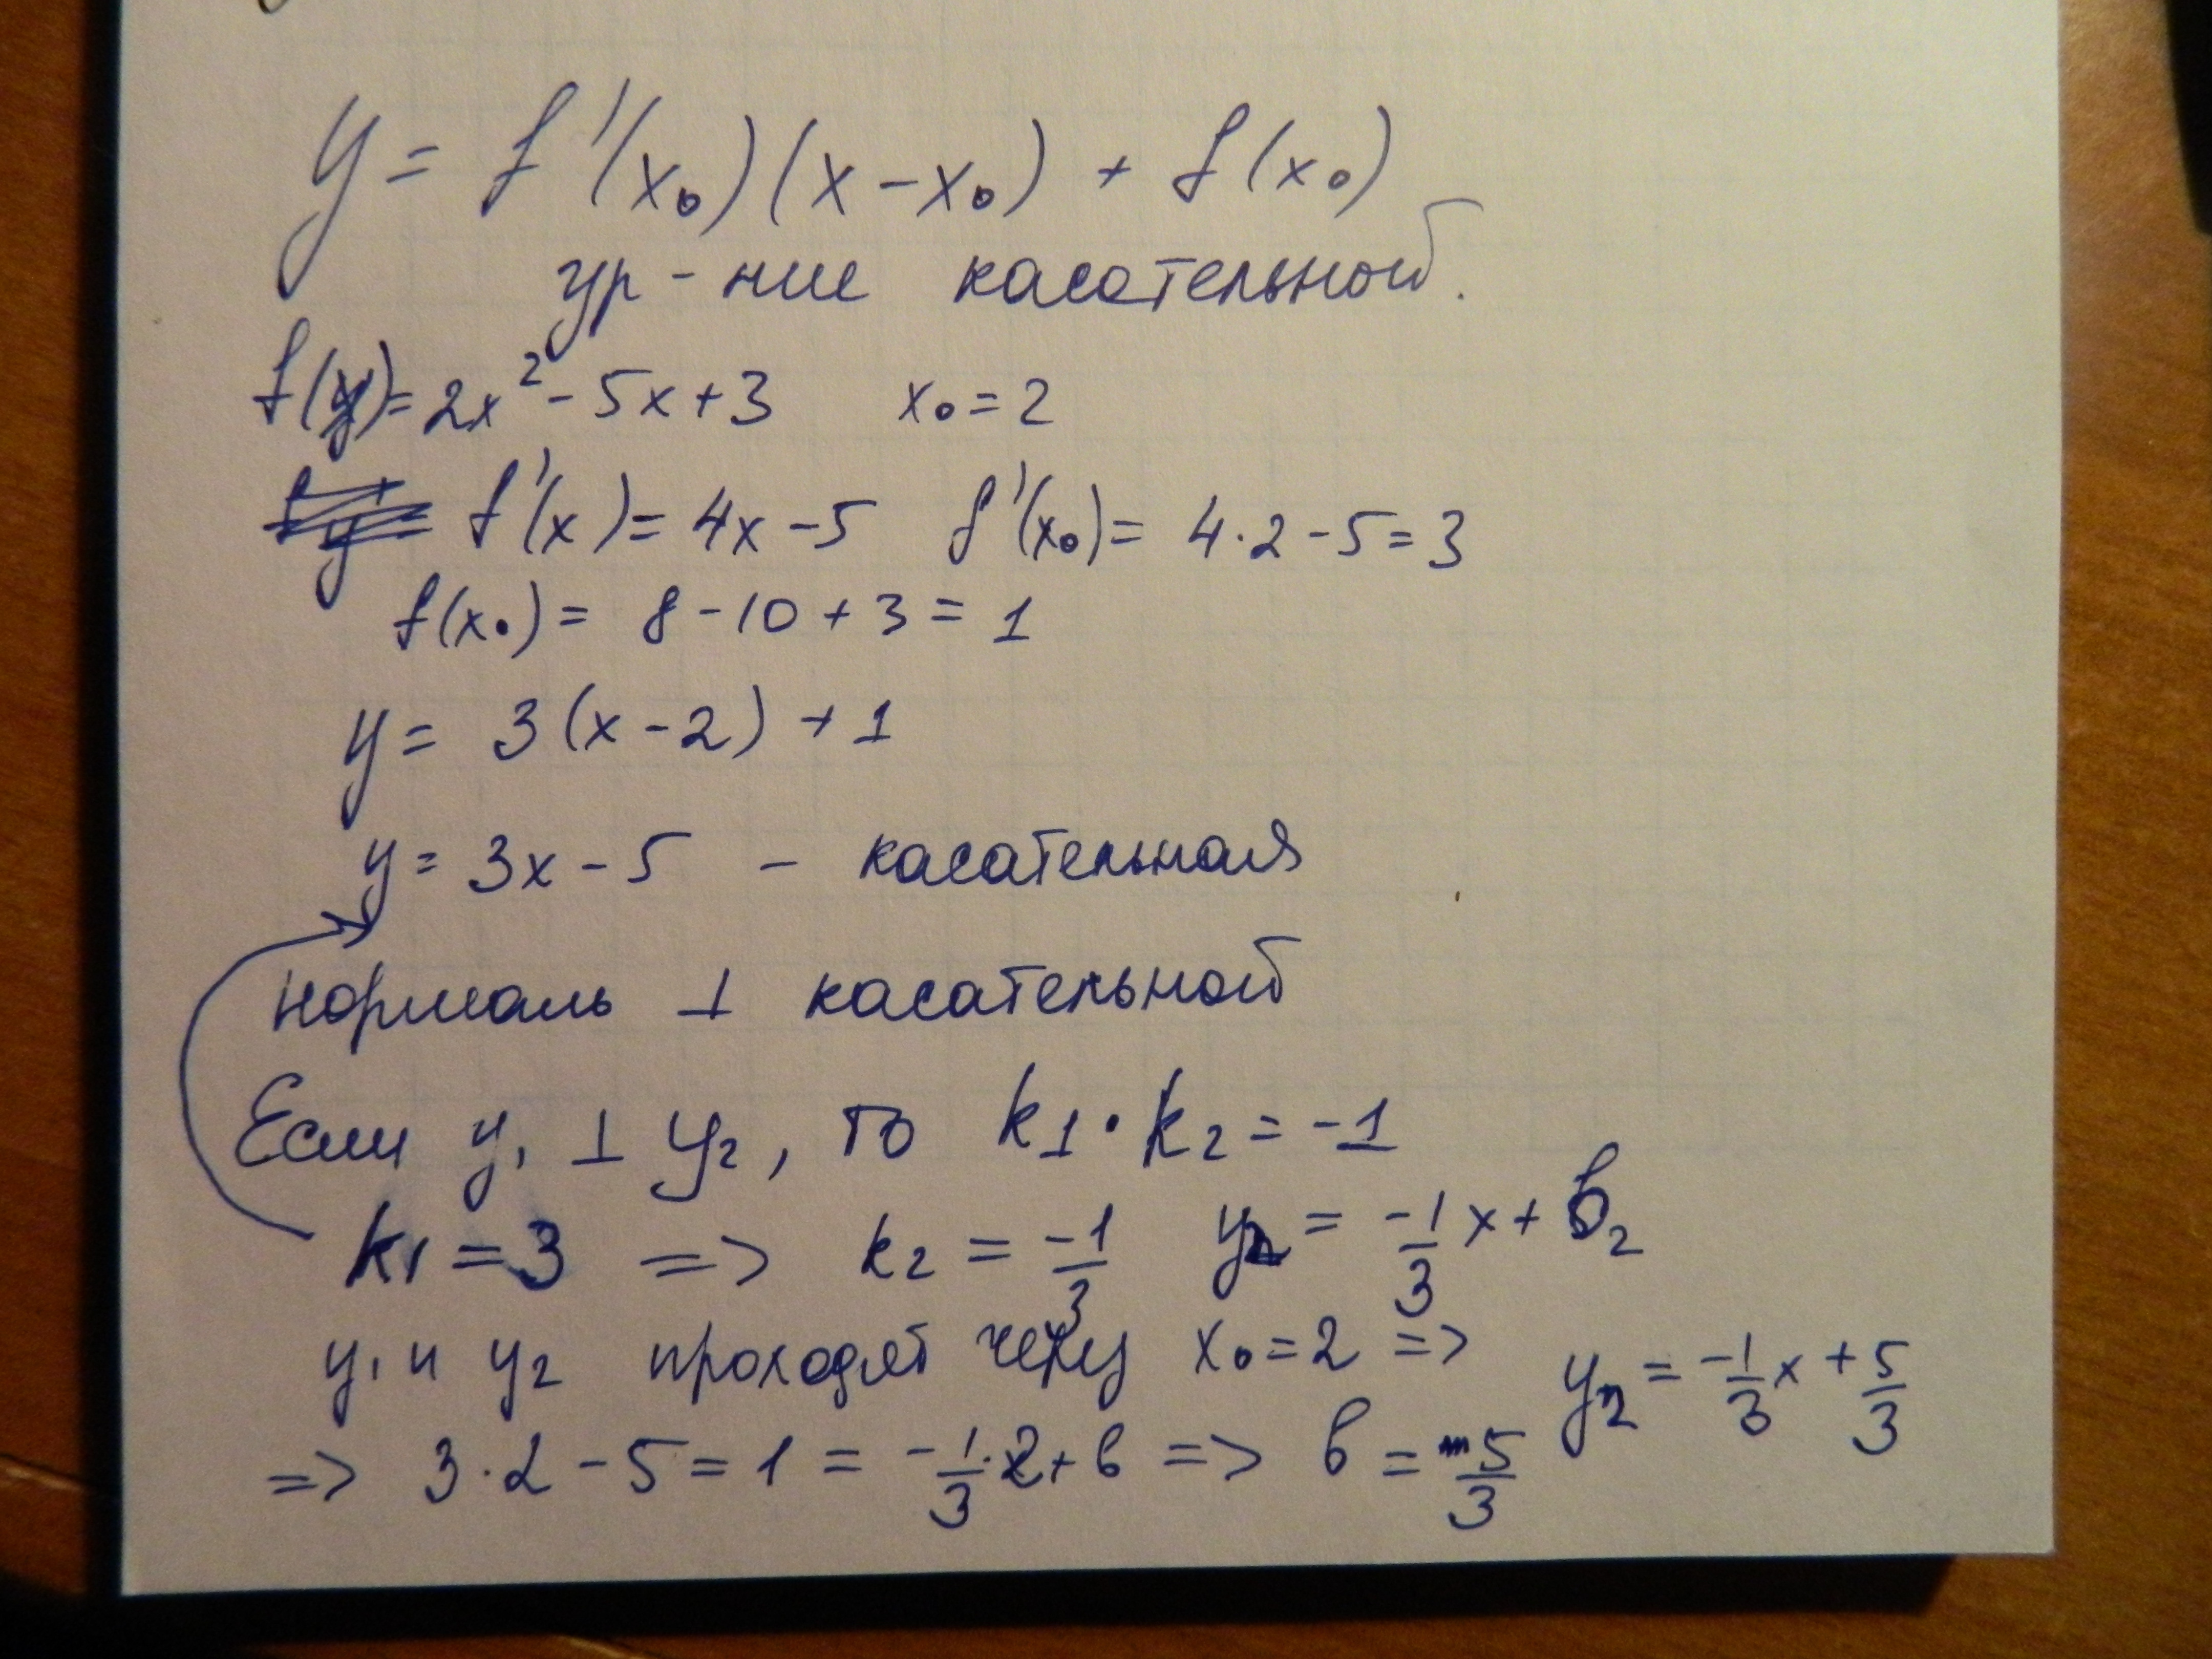 y = f'(x₀)(x-x₀) + f(x₀)
ур-ние касательной.
f(x)= 2x² - 5x + 3 x₀ = 2
f'(x) = 4x - 5 f'(x₀) = 4·2 - 5 = 3
f(x₀) = 8 - 10 + 3 = 1
y = 3(x - 2) + 1
y = 3x - 5 - касательная
нормаль ⊥ касательной
Если y₁ ⊥ y₂, то k₁ · k₂ = -1
k₁ = 3 => k₂ = -1/3 y₂ = -1/3 x + b₂
y₁ и y₂ проходят через x₀ = 2 => y₂ = -1/3 x + 5/3
=> 3·2 - 5 = 1 = -1/3·2 + b => b = 5/3